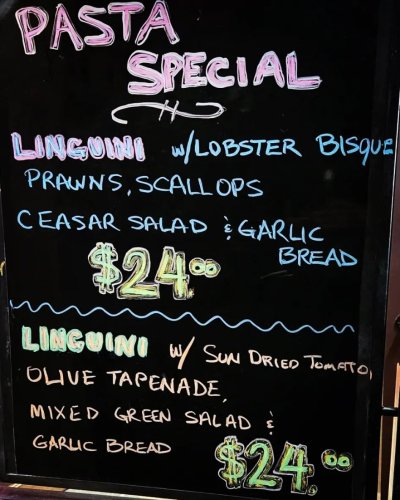 PASTA
SPECIAL
LINGUINI W/ LOBSTER BISQUE
PRAWNS, SCALLOPS
CEASAR SALAD & GARLIC
BREAD
$24.00
LINGUINI W/ SUN DRIED TOMATO,
OLIVE TAPENADE,
MIXED GREEN SALAD &
GARLIC BREAD
$24.00